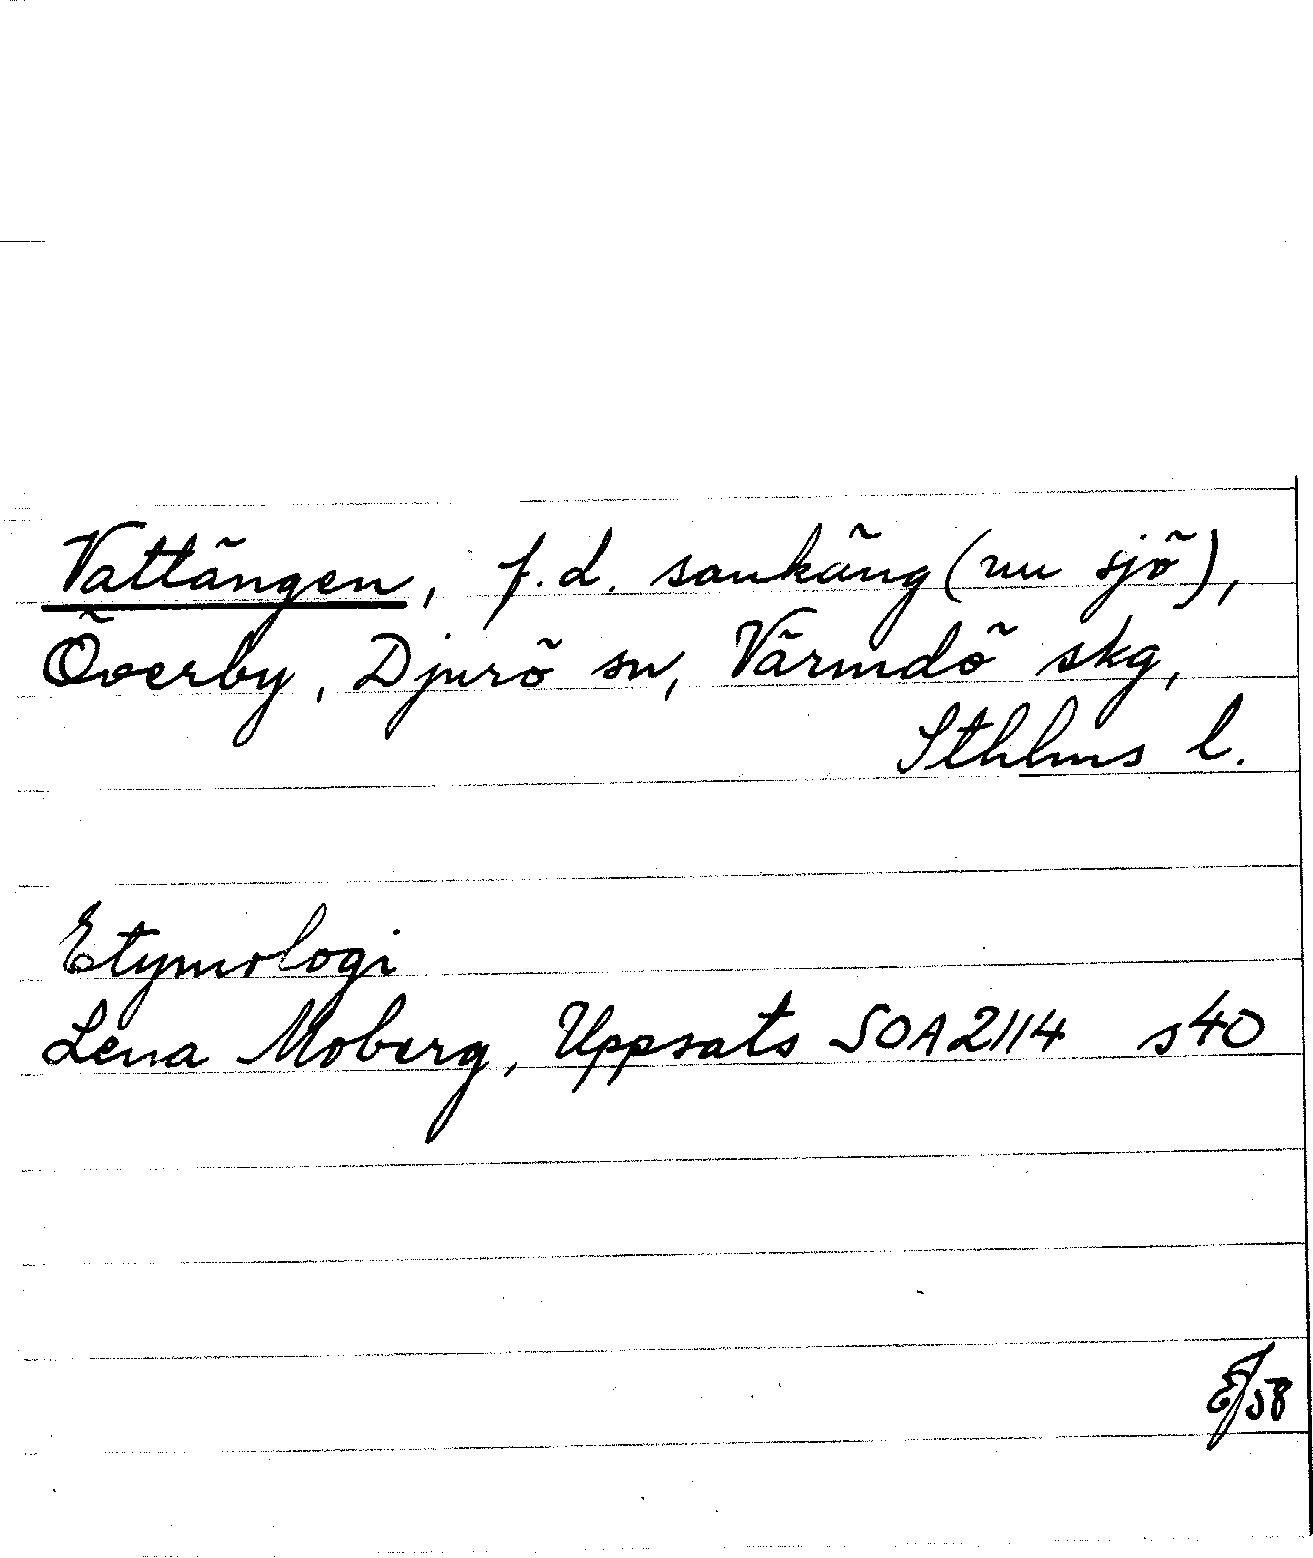 Vattängen, f.d. sankäng (nu sjö),
Överby, Djurö sn, Värmdö skg,
Sthlms l.
Etymologi
Lena Moberg, Uppsats SOA 2114 s 40